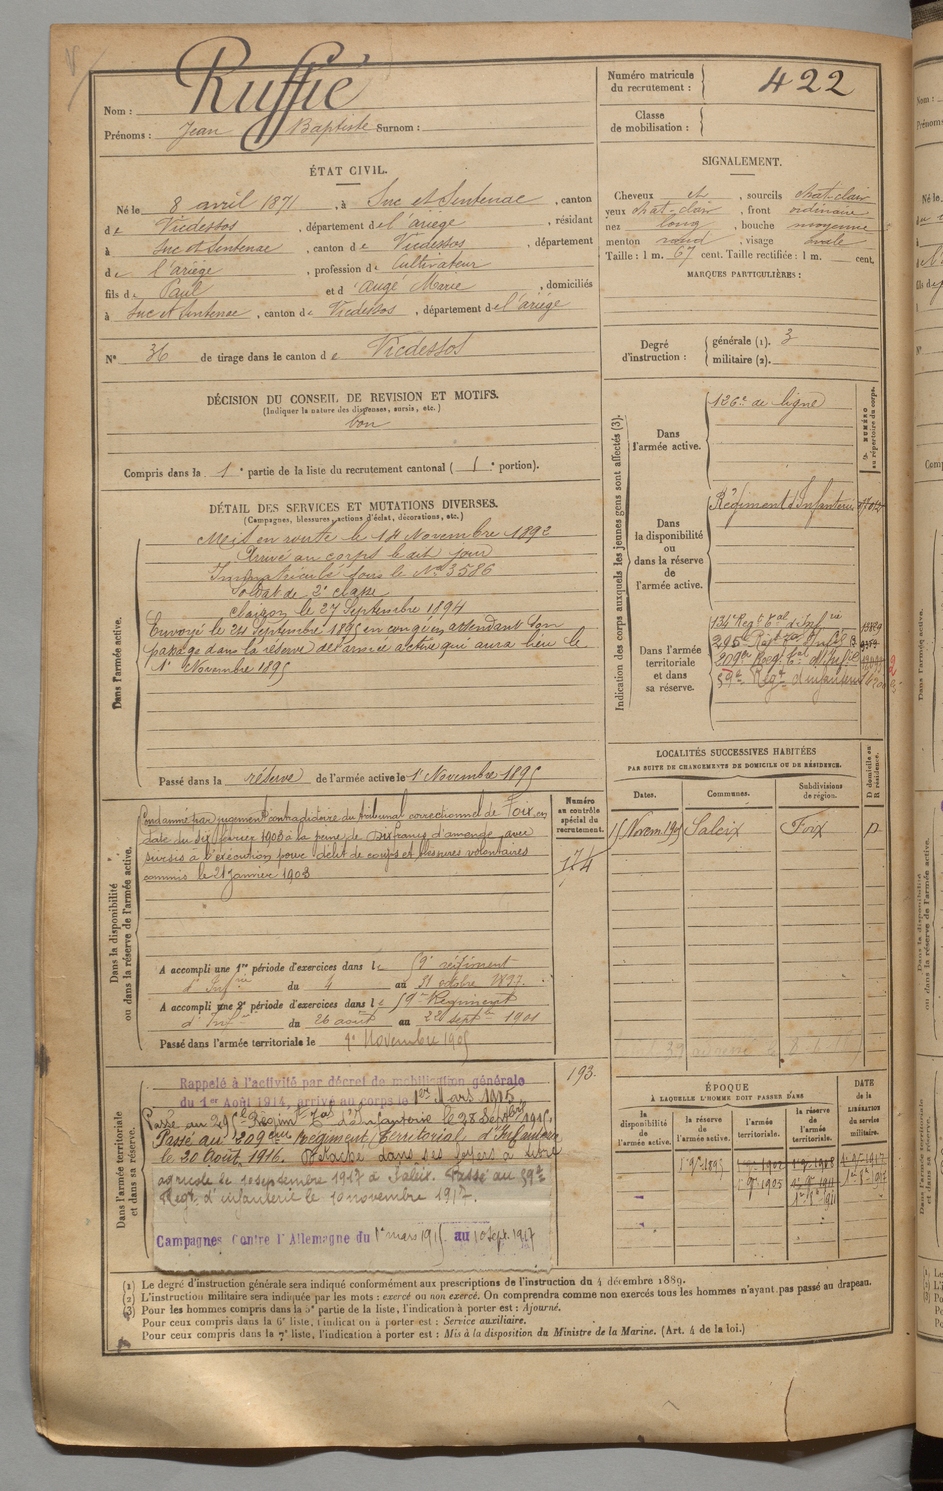 Nom : Ruffié
Prénoms : Jean Baptiste Surnom :
Numéro matricule du recrutement : 422
Classe de mobilisation :
ÉTAT CIVIL.
Né le 8 avril 1871, à Suc et Sentenac, canton
de Vicdessos, département de l'ariège, résidant
à Suc et Sentenac, canton de Vicdessos, département
de l'ariège, profession de Cultivateur
fils de Paul et d'Augé Marie, domiciliés
à Suc et Sentenac, canton de Vicdessos, département de l'ariège
N° 36 de tirage dans le canton de Vicdessos
SIGNALEMENT.
Cheveux et, sourcils chat-clair
yeux chat-clair, front ordinaire
nez long, bouche moyenne
menton rond, visage ovale
Taille : 1 m. 67 cent. Taille rectifiée : 1 m. cent.
MARQUES PARTICULIÈRES :
Degré d'instruction : générale (1). 3
militaire (2).
DÉCISION DU CONSEIL DE REVISION ET MOTIFS.
(Indiquer la nature des dispenses, sursis, etc.)
bon
Compris dans la 1e partie de la liste du recrutement cantonal (1e portion).
DÉTAIL DES SERVICES ET MUTATIONS DIVERSES.
(Campagnes, blessures, actions d'éclat, décorations, etc.)
Dans l'armée active.
Mis en route le 14 Novembre 1892
Arrivé au corps le dit jour
Immatriculé sous le No 3586
Soldat de 2e classe
Clairon le 27 Septembre 1894
Envoyé le 24 Septembre 1895 en congé en attendant son
passage dans la réserve de l'armée active qui aura lieu le
1er Novembre 1895
Passé dans la réserve de l'armée active le 1er Novembre 1895
Indication des corps auxquels les jeunes gens sont affectés (3).
NUMÉRO au répertoire du corps.
Dans l'armée active.
126e de ligne
Dans la disponibilité ou dans la réserve de l'armée active.
Régiment d'Infanterie
Dans l'armée territoriale et dans sa réserve.
134e Regt tal d'Infrie
295e Regt tal d'Infie
209e Reg. tal d'Infie
59e Regt d'infanterie
LOCALITÉS SUCCESSIVES HABITÉES
PAR SUITE DE CHANGEMENTS DE DOMICILE OU DE RÉSIDENCE.
Dates. Communes. Subdivisions de région. D domicile ou R résidence.
15 Novem 1905 Saleix Foix D
Dans la disponibilité ou dans la réserve de l'armée active.
Condamné par jugement contradictoire du tribunal correctionnel de Foix, en
date du dix février 1903 à la peine de Dix francs d'amende avec
sursis à l'exécution pour délit de coups et blessures volontaires
commis le 21 janvier 1903
Numéro au contrôle spécial du recrutement.
174
A accompli une 1re période d'exercices dans le 59e régiment
d'Infrie du 4 au 31 octobre 1897.
A accompli une 2e période d'exercices dans le 59e Régiment
d'Infie du 26 août au 22 septbre 1901
Passé dans l'armée territoriale le 1er Novembre 1905
193.
Dans l'armée territoriale et dans sa réserve.
Rappelé à l'activité par décret de mobilisation générale
du 1er Août 1914, arrivé au corps le 1er Mars 1915
Passé au 295e Régimt tal d'Infanterie le 28 Septbre 1915.
Passé au 209ème Régiment Territorial d'Infanterie
le 20 Août 1916. Détaché dans ses foyers à titre
agricole le 10 septembre 1917 à Saleix. Passé au 59e
Regt d'infanterie le 10 novembre 1917.
Campagnes Contre l'Allemagne du 1er mars 1915 au 10 Sept. 1917
ÉPOQUE
À LAQUELLE L'HOMME DOIT PASSER DANS
la disponibilité de l'armée active. la réserve de l'armée active. l'armée territoriale. la réserve de l'armée territoriale. DATE de la LIBÉRATION du service militaire.
1er 9bre 1895 1er 9bre 1905
(1) Le degré d'instruction générale sera indiqué conformément aux prescriptions de l'instruction du 4 décembre 1889.
(2) L'instruction militaire sera indiquée par les mots : exercé ou non exercé. On comprendra comme non exercés tous les hommes n'ayant pas passé au drapeau.
(3) Pour les hommes compris dans la 5e partie de la liste, l'indication à porter est : Ajourné.
Pour ceux compris dans la 6e liste, l'indication à porter est : Service auxiliaire.
Pour ceux compris dans la 7e liste, l'indication à porter est : Mis à la disposition du Ministre de la Marine. (Art. 4 de la loi.)